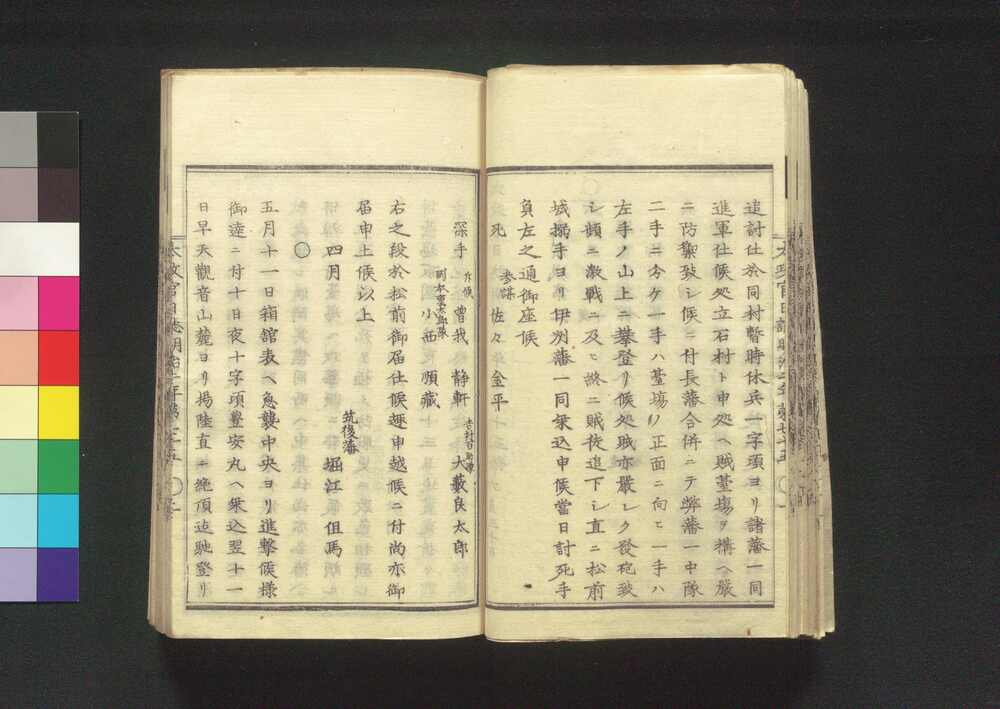 追討仕於同村暫時休兵一字頃ヨリ諸藩一同
進軍仕候処立石村ト申処ヘ賊臺場ヲ構ヘ嚴
ニ防禦致シ候ニ付長藩合併ニテ弊藩一中隊
二手ニ分ケ一手ハ臺場ノ正面ニ向ヒ一手ハ
左手ノ山上ニ攀登リ候処賊亦嚴シク發砲致
シ頻ニ激戰ニ及ヒ終ニ賊徒追下シ直ニ松前
城搦手ヨリ伊州藩一同乗込申候當日討死手
負左之通御座候
死
参謀
佐々金平
深手
斥候
曽我静軒
吉村百助隊
大藪良太郎
副本重太郎隊
小西順藏
右之段於松前御届仕候趣申越候ニ付尚亦御
届申上候以上
四月
筑後藩
堀江但馬
○
五月十一日箱館表ヘ急襲中央ヨリ進擊候様
御達ニ付十日夜十字頃豊安丸ヘ乗込翌十一
日早天觀音山麓ヨリ揚陸直ニ絶頂迠馳登リ